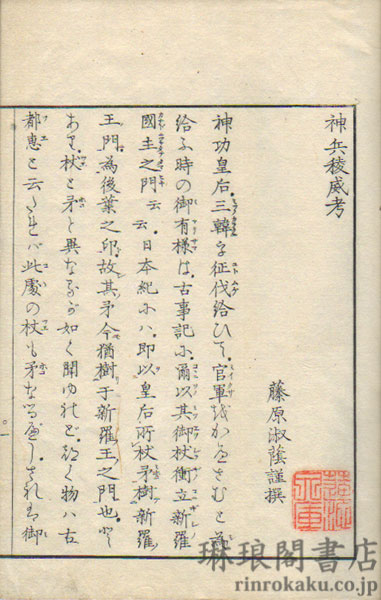 神兵稜威考
藤原淑蔭謹撰
神功皇后、三韓を征伐給ひて、官軍をかへさむと為
給ふ時の御有様は、古事記に爾以其御杖衝立新羅
國主之門云云、日本紀には、即以皇后所杖矛樹新羅
王門、為後葉之印、故其矛今猶樹于新羅王之門也、と
あり、杖と矛と異なるが如く聞ゆれど、つく物ハ古
都恵と云たれバ此處の杖も矛なるべし、されば御
琳琅閣書店
rinrokaku.co.jp